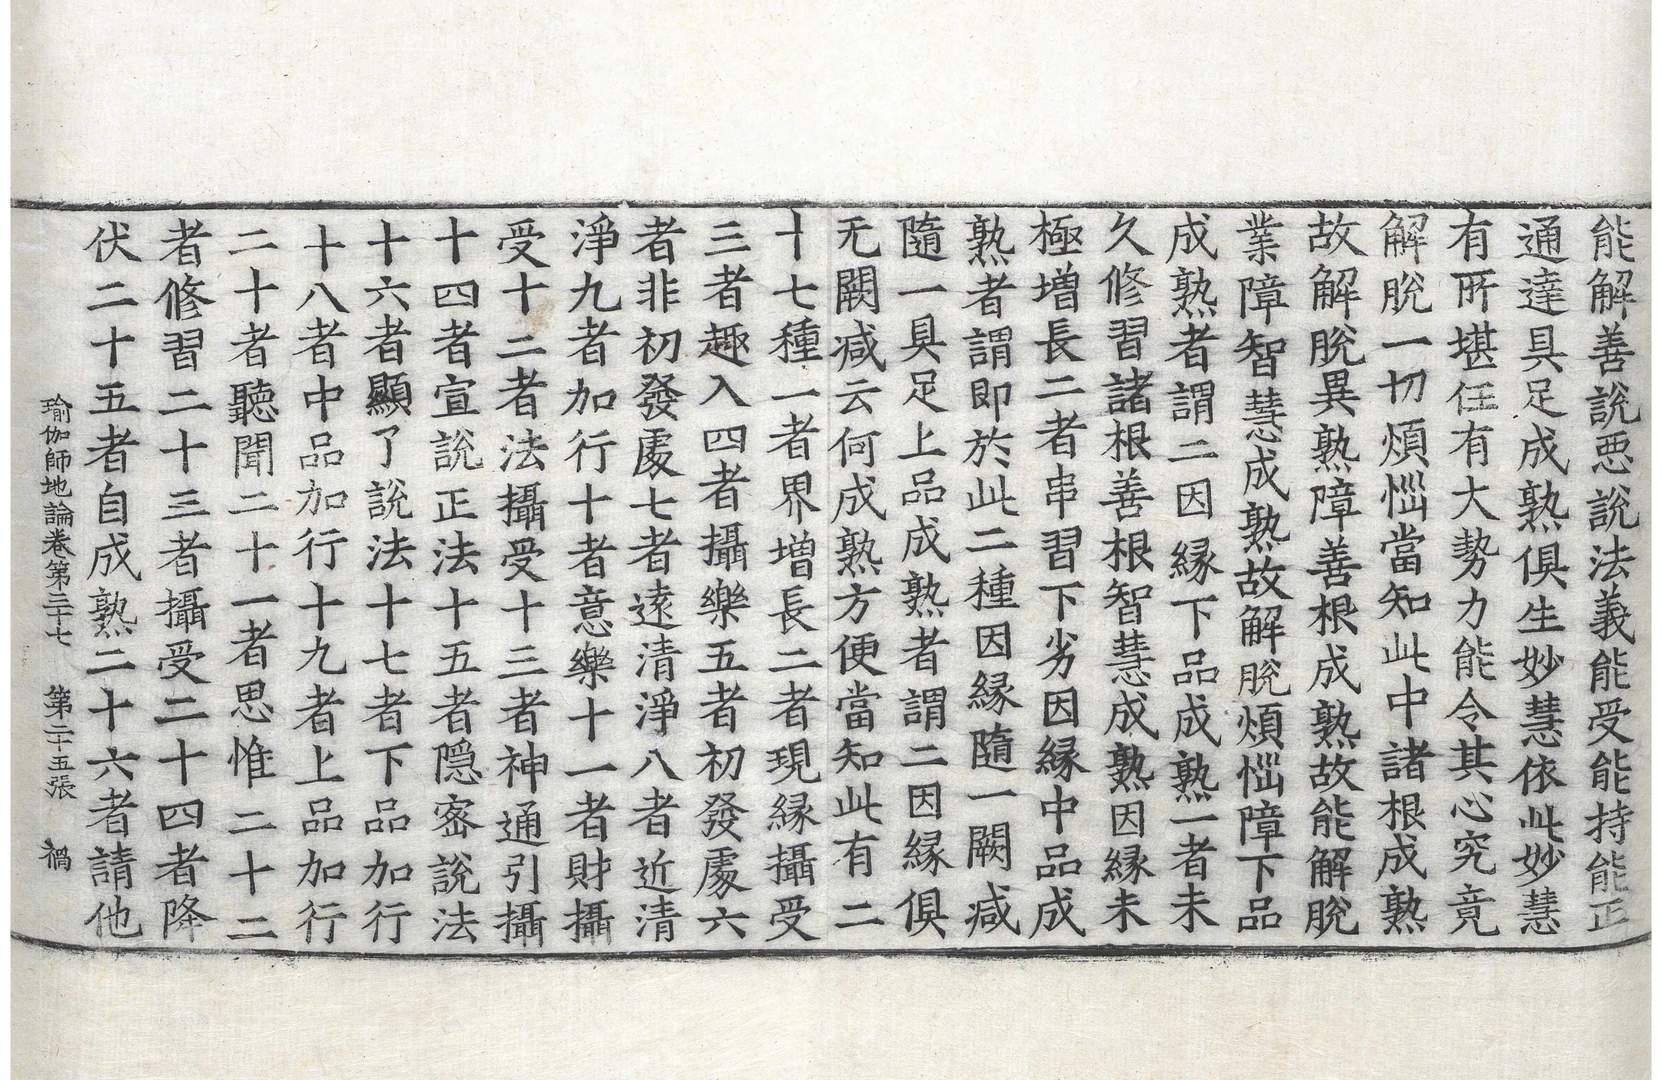 能解善說惡說法義能受能持能正
通達具足成熟俱生妙慧依此妙慧
有所堪任有大勢力能令其心究竟
解脫一切煩惱當知此中諸根成熟
故解脫異熟障善根成熟故能解脫
業障智慧成熟故解脫煩惱障下品
成熟者謂二因緣下品成熟一者未
久修習諸根善根智慧成熟因緣未
極增長二者串習下劣因緣中品成
熟者謂即於此二種因緣隨一闕减
隨一具足上品成熟者謂二因緣俱
无闕减云何成熟方便當知此有二
十七種一者界增長二者現緣攝受
三者趣入四者攝樂五者初發處六
者非初發處七者遠清淨八者近清
淨九者加行十者意樂十一者財攝
受十二者法攝受十三者神通引攝
十四者宣說正法十五者隱密說法
十六者顯了說法十七者下品加行
十八者中品加行十九者上品加行
二十者聽聞二十一者思惟二十二
者修習二十三者攝受二十四者降
伏二十五者自成熟二十六者請他
瑜伽師地論卷第三十七 第二十五張 禍